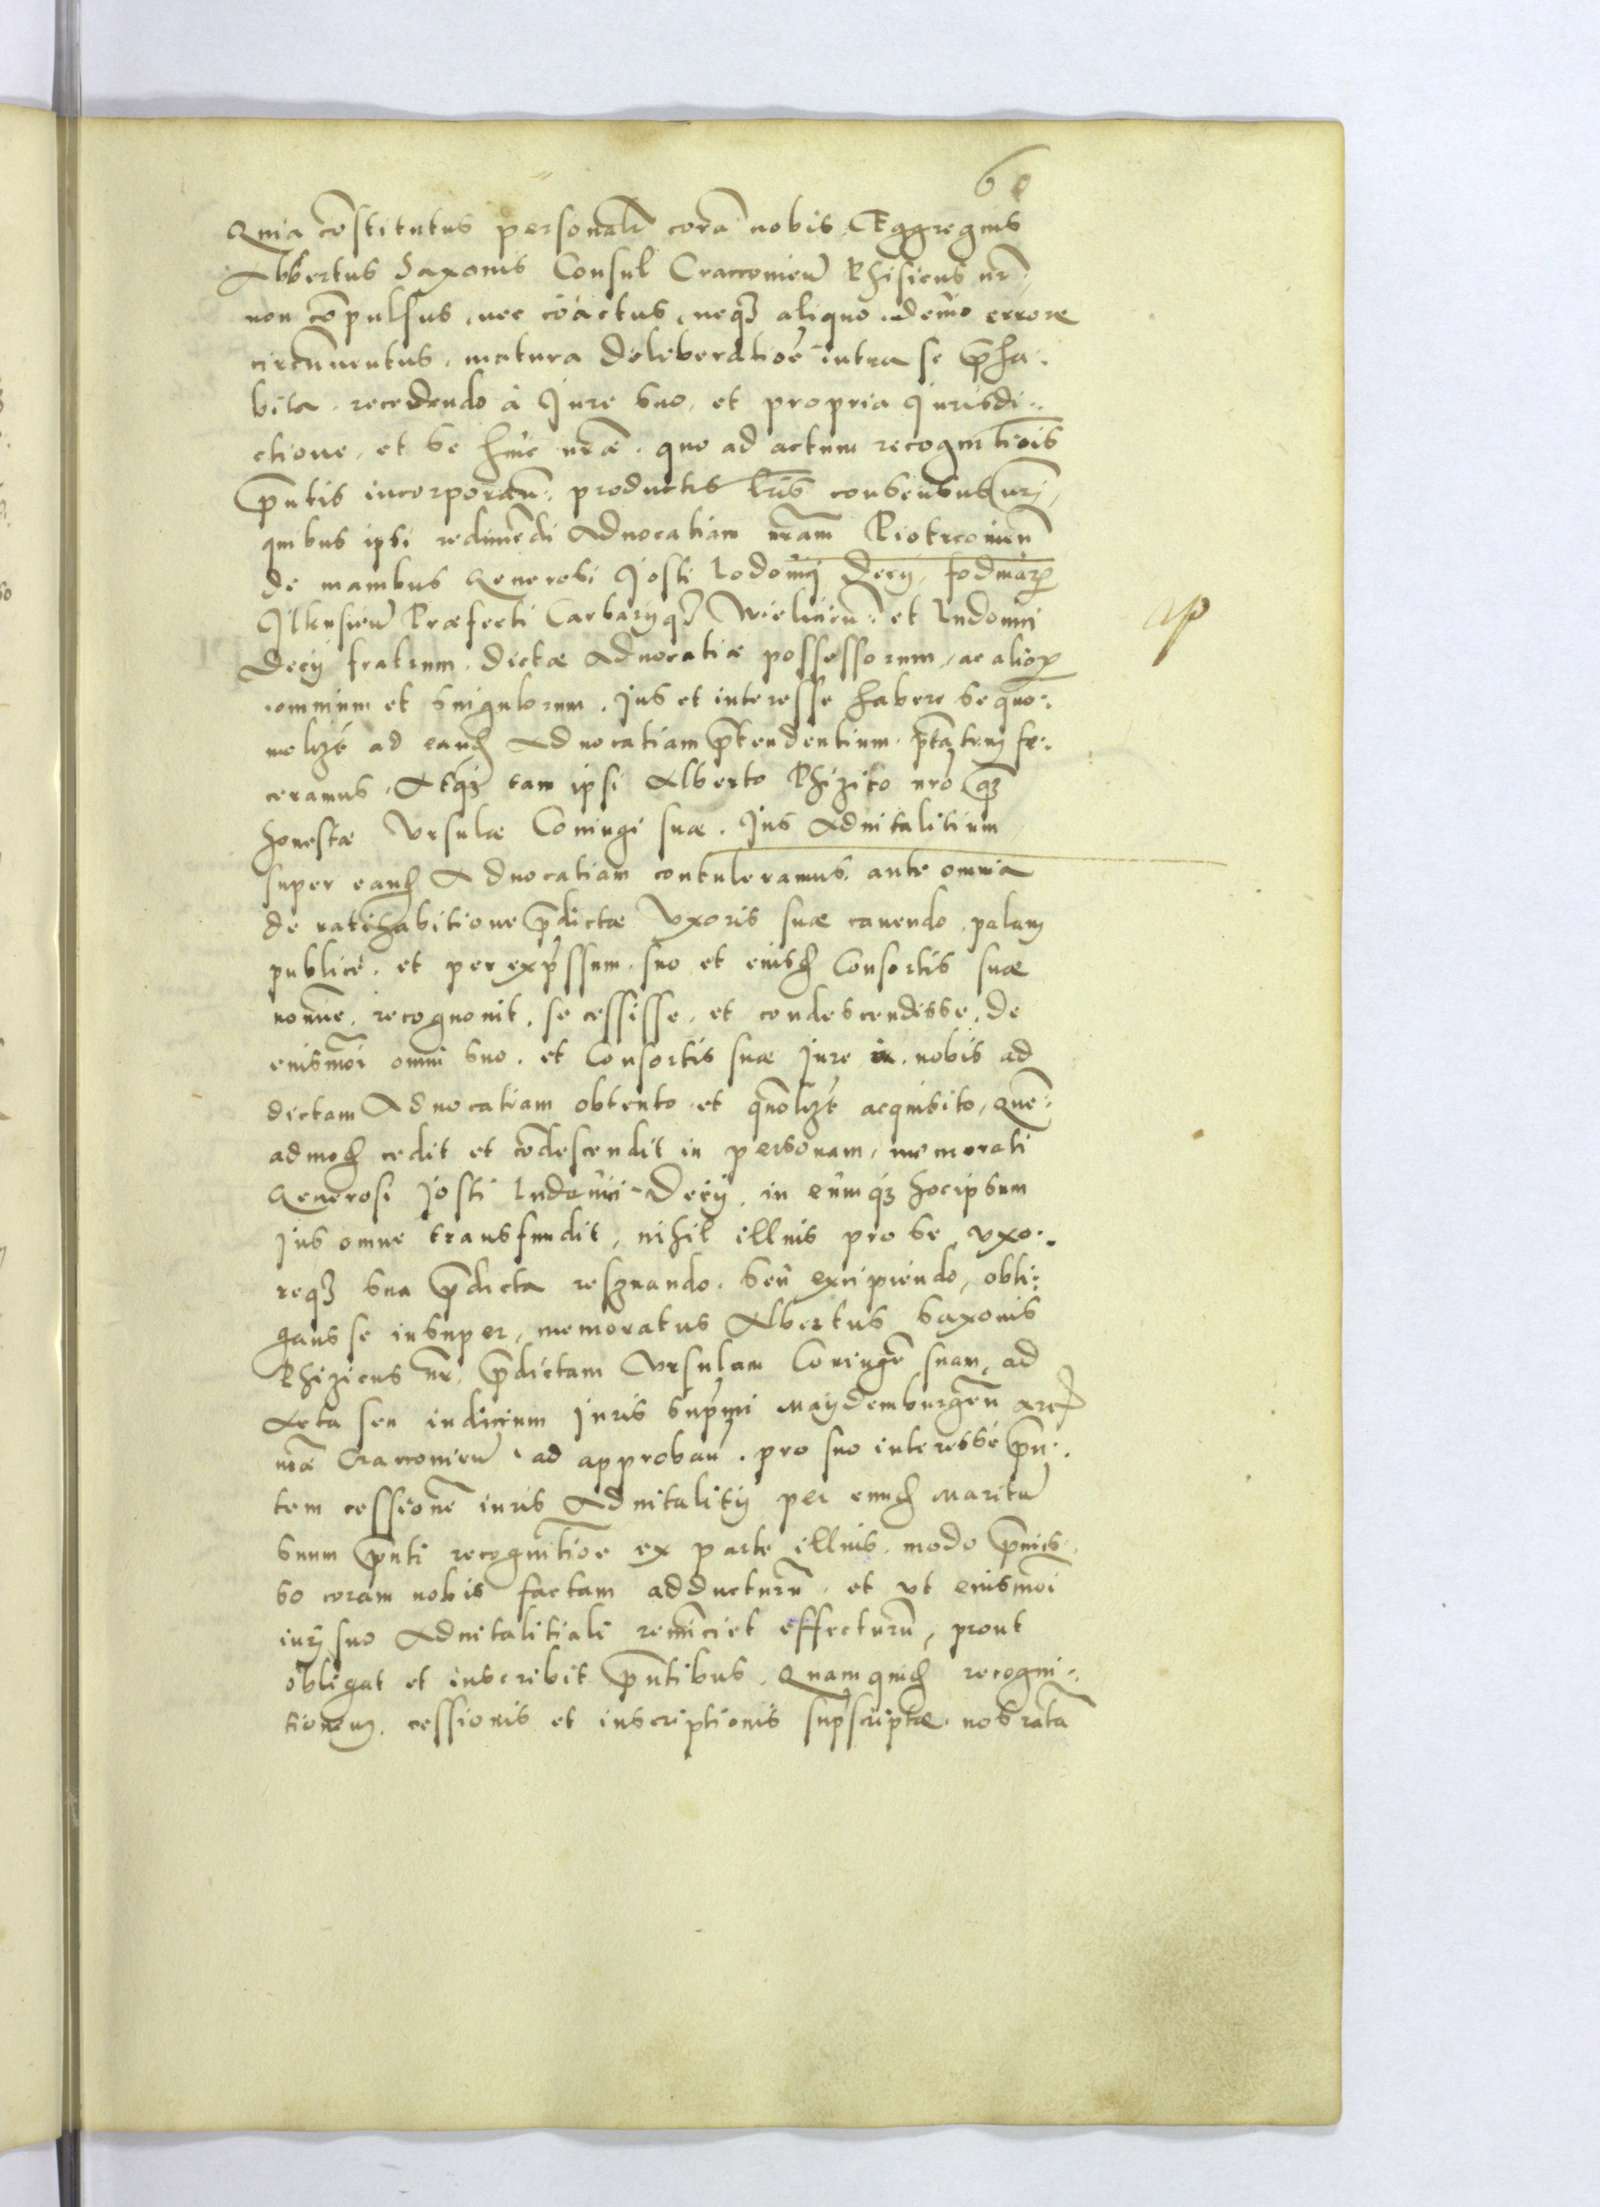 60
Quia cōstitutus personalr̄ corā nobis Eggregius
Albertus Saxonis Consul Craccovieñ Phisicus nr̄,
non cōpulsus, nec coactus, neqʒ aliquo demū errore
circūventus, matura deliberatiōe intra se p̄ha:
bita, recedendo à Jure suo, et propria Jurisdi:
ctione, et se huic nr̄æ, quo ad actum recognitiōis
p̄ntis incorporān: productis lr̄is consensus nrj,
quibus ipsi redimēdi Advocatiam nr̄am Piotrcovień
de manibus Generosi Josti Lodovici Decij, fodinarꝝ
Jlkusień Præfecti Carbarijqʒ Wielicień: et Ludovici
Decij fratrum, dictæ Advocatiæ possessorum, ac alioꝝ
omnium et singulorum, Jus et interesse habere se quo:
ap
ceramus, Atqʒ tam ipsi Alberto Phizico nrō qʒ
honestæ Ursulæ Coniugi suæ, Jus Advitalitium
super eand Advocatiam contuleramus, ante omnia
de ratihabitione p̄dictæ Uxoris suæ cavendo, palam
publicè, et per exp̄ssum, suo et eiusd Consortis suæ
noīne, recognovit, se cessisse, et condescendisse, de
eiusmōi omni suo, et Consortis suæ Jure à nobis ad
dictam Advocatiam obtento et quōlzt acquisito, Quē:
admod cedit et cōdescendit in personam, memorati
Generosi Josti Ludovici Decij, in eumqʒ hocipsum
Jus omne transfundit, nihil illius pro se, uxo:
reqʒ sua p̄dicta resrvando, seu excipiendo, obli:
gans se insuper, memoratus Albertus Saxonis
Phizicus nr̄, p̄dictam Ursulam Coniugē suam, ad
Acta seu iudicium Juris sup̄mi Maydemburgeñ arcis
nr̄æ Craccovieñ ad approban̄, pro suo interesse p̄n:
tem cessionē iuris Advitalitij per eund Maritū
suum p̄nti recognitiōe ex parte illius, modo p̄mis:
so coram nobis factam adducturū, et ut eiusmōi
iurj suo Advitalitiali renūciet effecturū, prout
obligat et inscribit p̄ntibus, Quam quid recogni:
tionem, cessionis et inscriptionis sup̄scriptæ, nos ratā